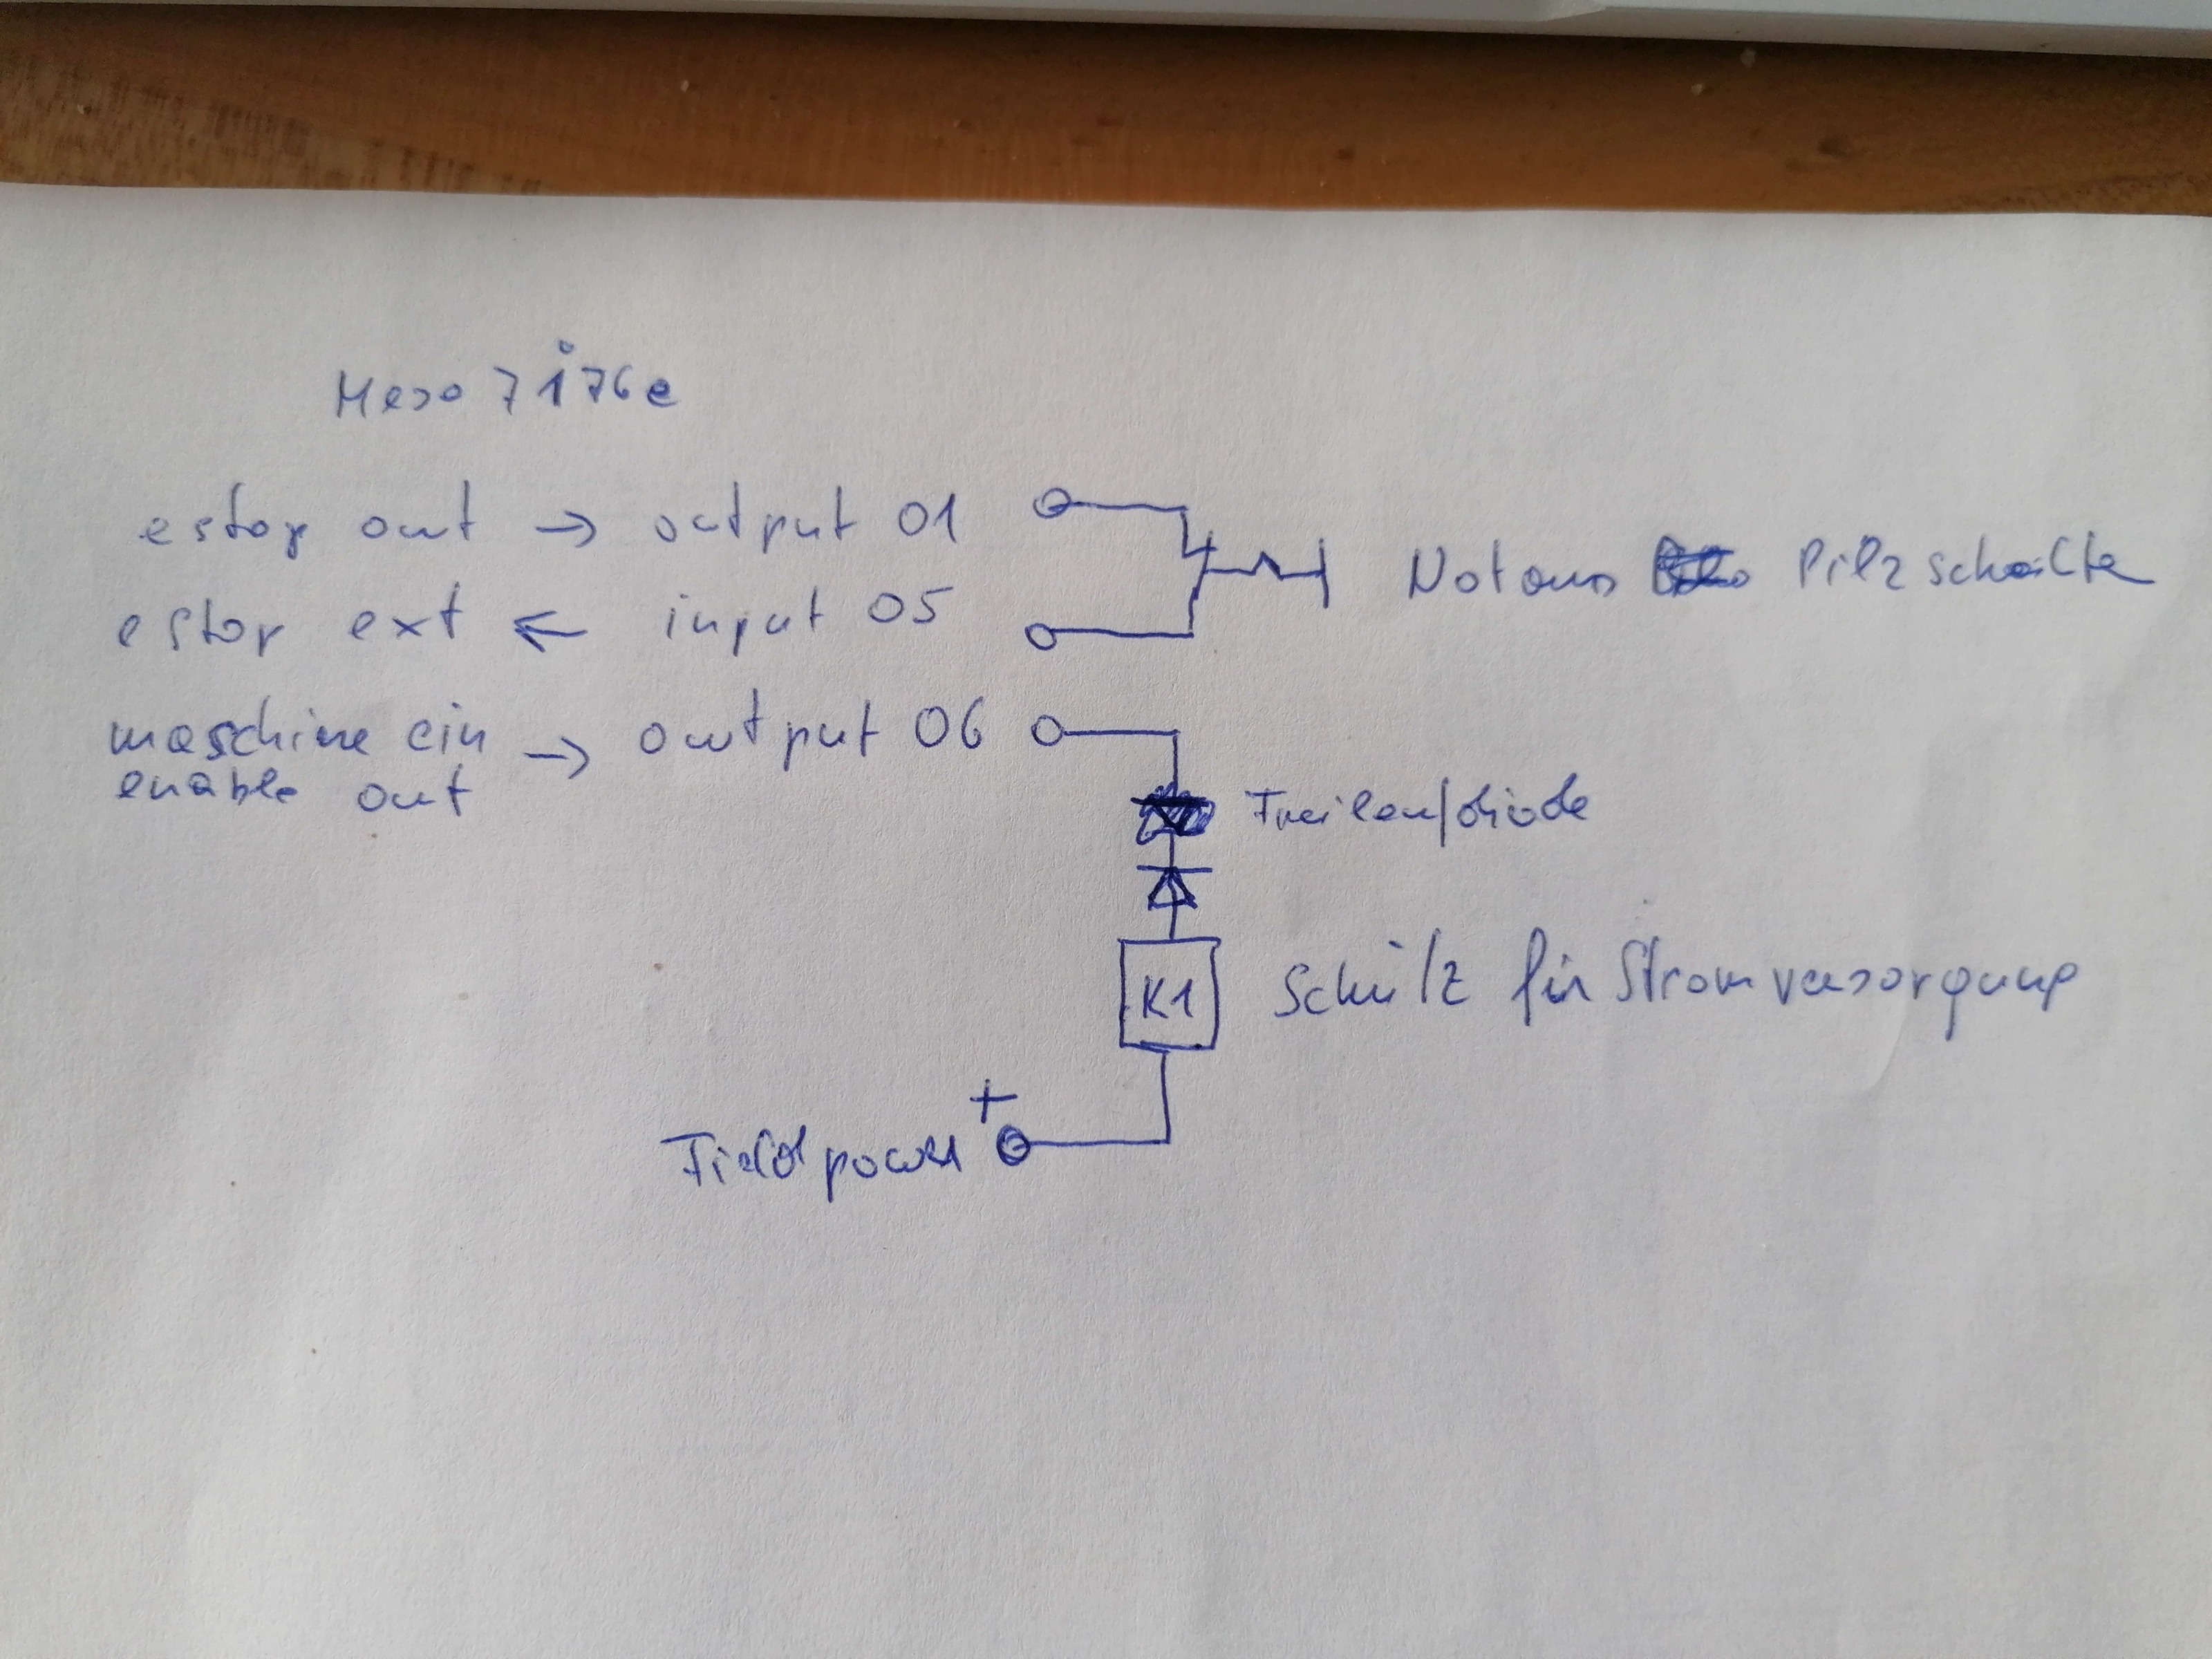 Mesa 7i76e
estop out → output 01
Notaus Pilzschalter
estop ext ← input 05
maschine ein → output 06
enable out
Freilaufdiode
K1
Schütz für Stromversorgung
+
Fieldpower